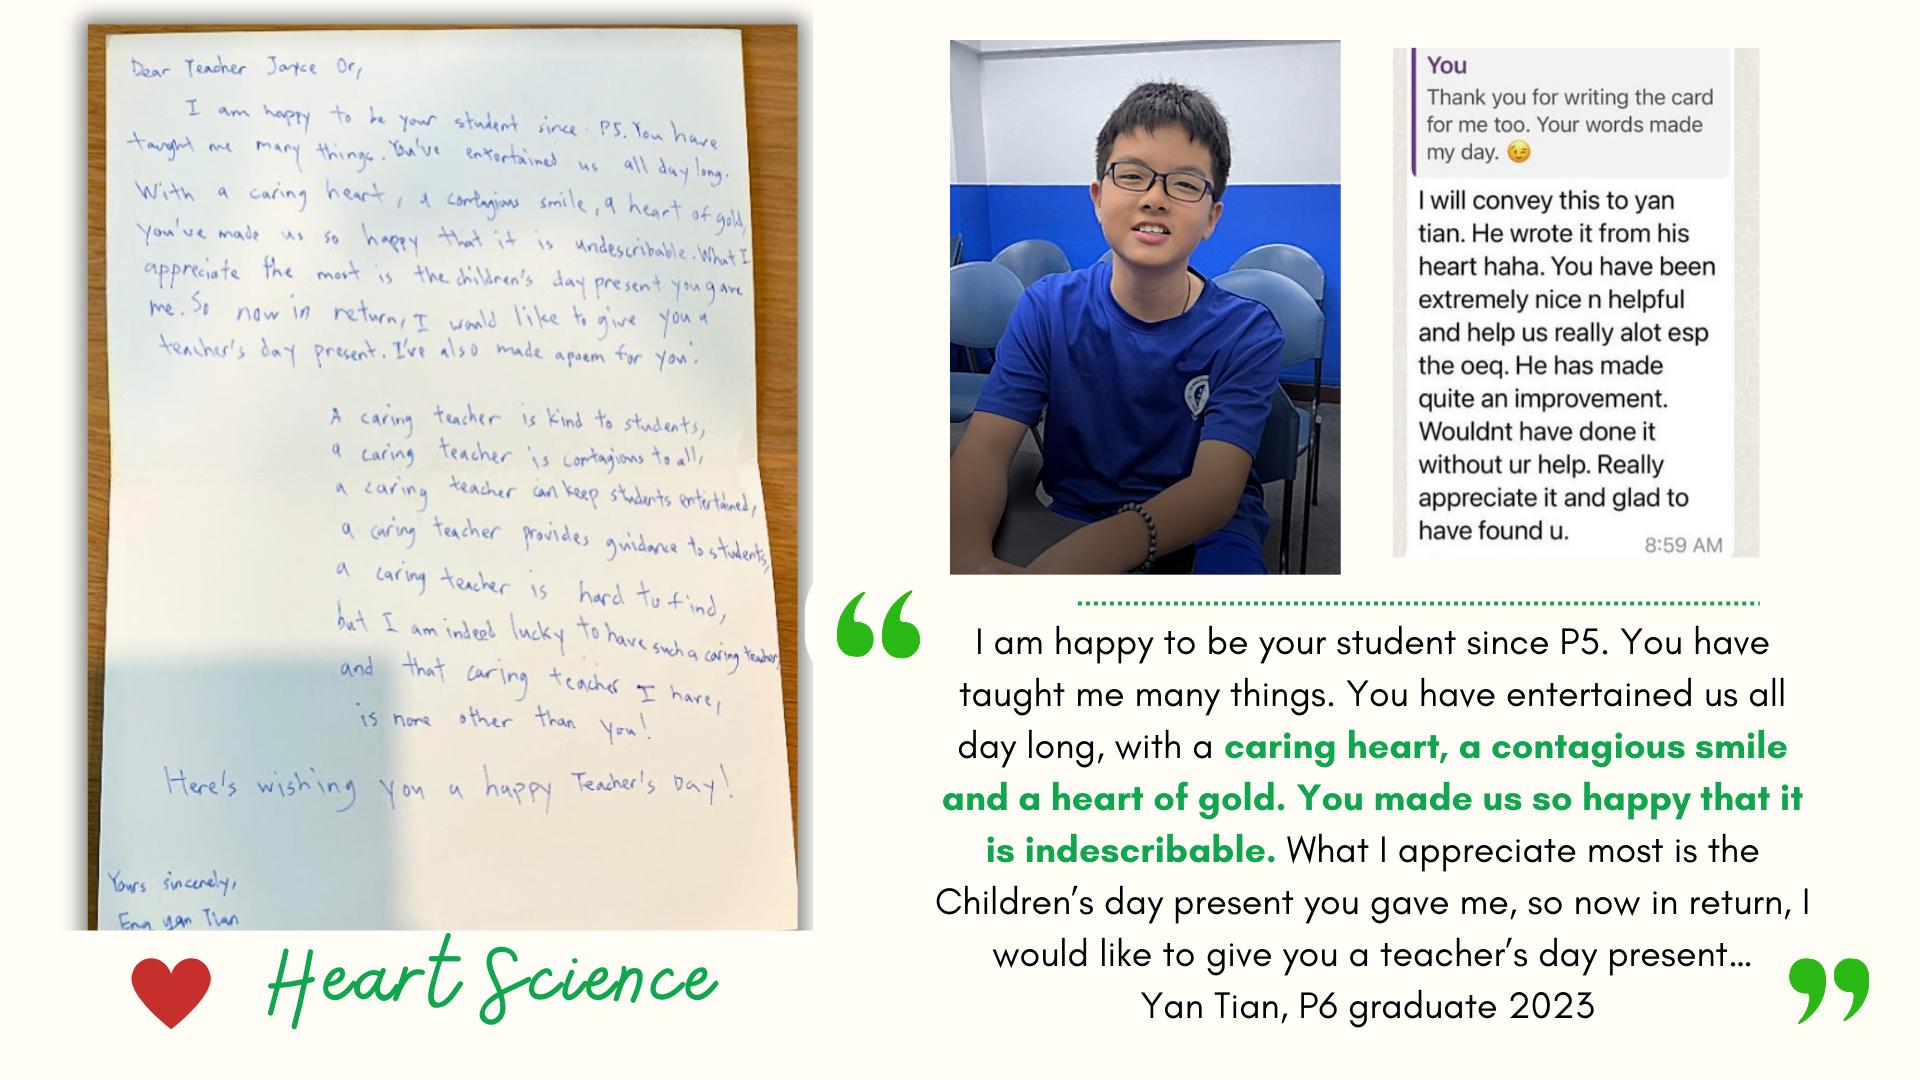 Dear Teacher Jayce Or,
I am happy to be your student since P5. You have
taught me many things. You've entertained us all day long.
With a caring heart, a contagious smile, a heart of gold,
you've made us so happy that it is undescribable. What I
appreciate the most is the children's day present you gave
me. So now in return, I would like to give you a
teacher's day present. I've also made a poem for you:
A caring teacher is kind to students,
a caring teacher is contagious to all,
a caring teacher can keep students entertained,
a caring teacher provides guidance to students,
a caring teacher is hard to find,
but I am indeed lucky to have such a caring teacher,
and that caring teacher I have,
is none other than you!
Here's wishing you a happy Teacher's Day!
Yours sincerely,
Eng Yan Tian
Heart Science
You
Thank you for writing the card
for me too. Your words made
my day. 😉
I will convey this to yan
tian. He wrote it from his
heart haha. You have been
extremely nice n helpful
and help us really alot esp
the oeq. He has made
quite an improvement.
Wouldnt have done it
without ur help. Really
appreciate it and glad to
have found u.
8:59 AM
“
I am happy to be your student since P5. You have
taught me many things. You have entertained us all
day long, with a caring heart, a contagious smile
and a heart of gold. You made us so happy that it
is indescribable. What I appreciate most is the
Children’s day present you gave me, so now in return, I
would like to give you a teacher’s day present...
Yan Tian, P6 graduate 2023
”